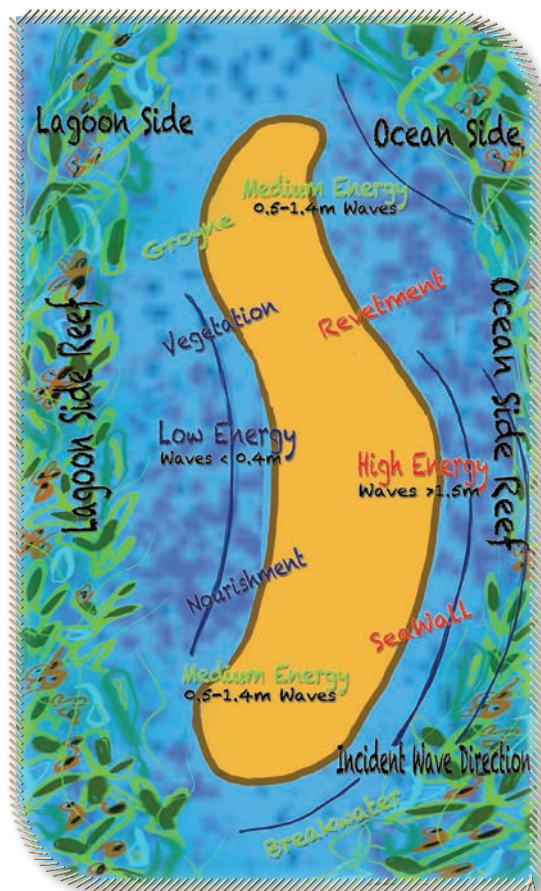 Lagoon Side
Ocean Side
Medium Energy
0.5-1.4m Waves
Groyne
Vegetation
Revetment
Lagoon Side Reef
Ocean Side Reef
Low Energy
Waves < 0.4m
High Energy
Waves >1.5m
Nourishment
SeaWall
Medium Energy
0.5-1.4m Waves
Incident Wave Direction
Breakwater